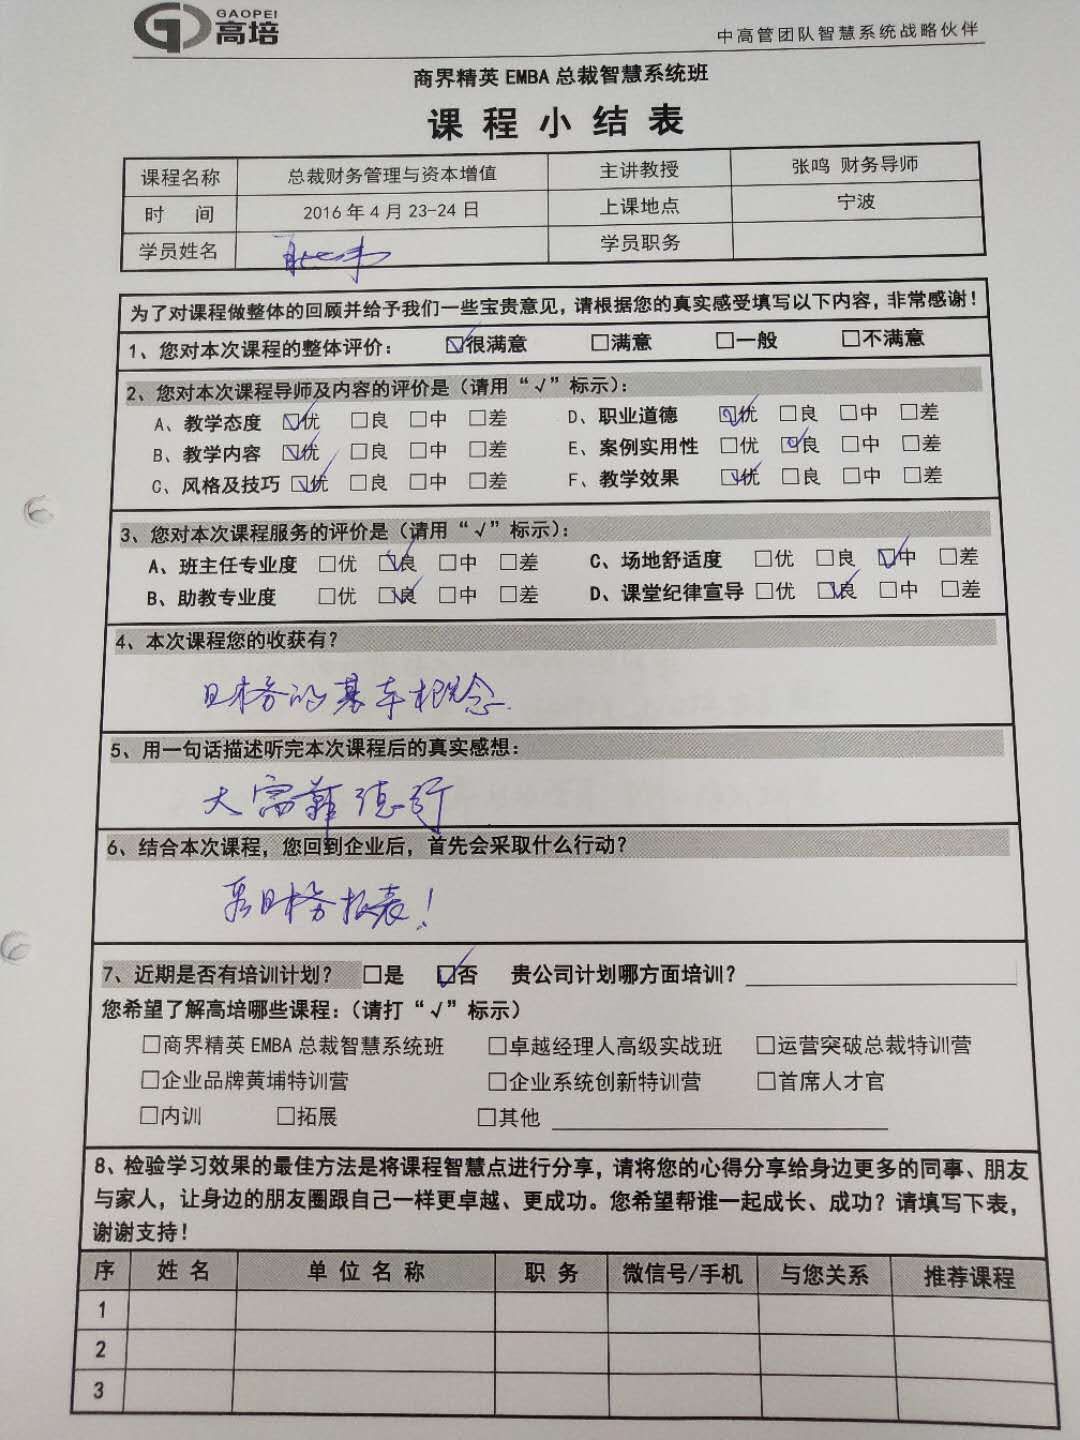 GAOPEI
高培
中高管团队智慧系统战略伙伴
商界精英 EMBA 总裁智慧系统班
课程小结表
课程名称 总裁财务管理与资本增值 主讲教授 张鸣 财务导师
时 间 2016 年 4 月 23-24 日 上课地点 宁波
学员姓名 学员职务
为了对课程做整体的回顾并给予我们一些宝贵意见，请根据您的真实感受填写以下内容，非常感谢！
1、您对本次课程的整体评价： ☑很满意 □满意 □一般 □不满意
2、您对本次课程导师及内容的评价是（请用“√”标示）：
A、教学态度 ☑优 □良 □中 □差 D、职业道德 ☑优 □良 □中 □差
B、教学内容 ☑优 □良 □中 □差 E、案例实用性 □优 ☑良 □中 □差
C、风格及技巧 ☑优 □良 □中 □差 F、教学效果 ☑优 □良 □中 □差
3、您对本次课程服务的评价是（请用“√”标示）：
A、班主任专业度 □优 ☑良 □中 □差 C、场地舒适度 □优 □良 ☑中 □差
B、助教专业度 □优 ☑良 □中 □差 D、课堂纪律宣导 □优 ☑良 □中 □差
4、本次课程您的收获有？
财务的基本概念.
5、用一句话描述听完本次课程后的真实感想：
大富靠德行
6、结合本次课程，您回到企业后，首先会采取什么行动？
看财务报表！
7、近期是否有培训计划？ □是 ☑否 贵公司计划哪方面培训？
您希望了解高培哪些课程：（请打“√”标示）
□商界精英 EMBA 总裁智慧系统班 □卓越经理人高级实战班 □运营突破总裁特训营
□企业品牌黄埔特训营 □企业系统创新特训营 □首席人才官
□内训 □拓展 □其他
8、检验学习效果的最佳方法是将课程智慧点进行分享，请将您的心得分享给身边更多的同事、朋友
与家人，让身边的朋友圈跟自己一样更卓越、更成功。您希望帮谁一起成长、成功？请填写下表，
谢谢支持！
序 姓 名 单 位 名 称 职 务 微信号/手机 与您关系 推荐课程
1
2
3